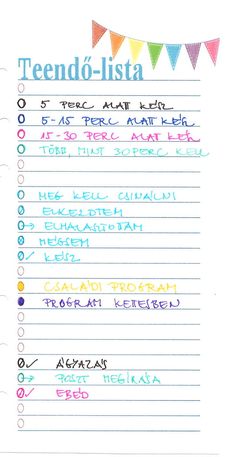 Teendő-lista
5 PERC ALATT KÉSZ
5-15 PERC ALATT KÉSZ
15-30 PERC ALATT KÉSZ
TÖBB, MINT 30 PERC KELL
MEG KELL CSINÁLNI
ELKEZDTEM
ELHALASZTOTTAM
MÉGSEM
KÉSZ
CSALÁDI PROGRAM
PROGRAM KETTESBEN
ÁGYAZÁS
POSZT MEGÍRÁSA
EBÉD